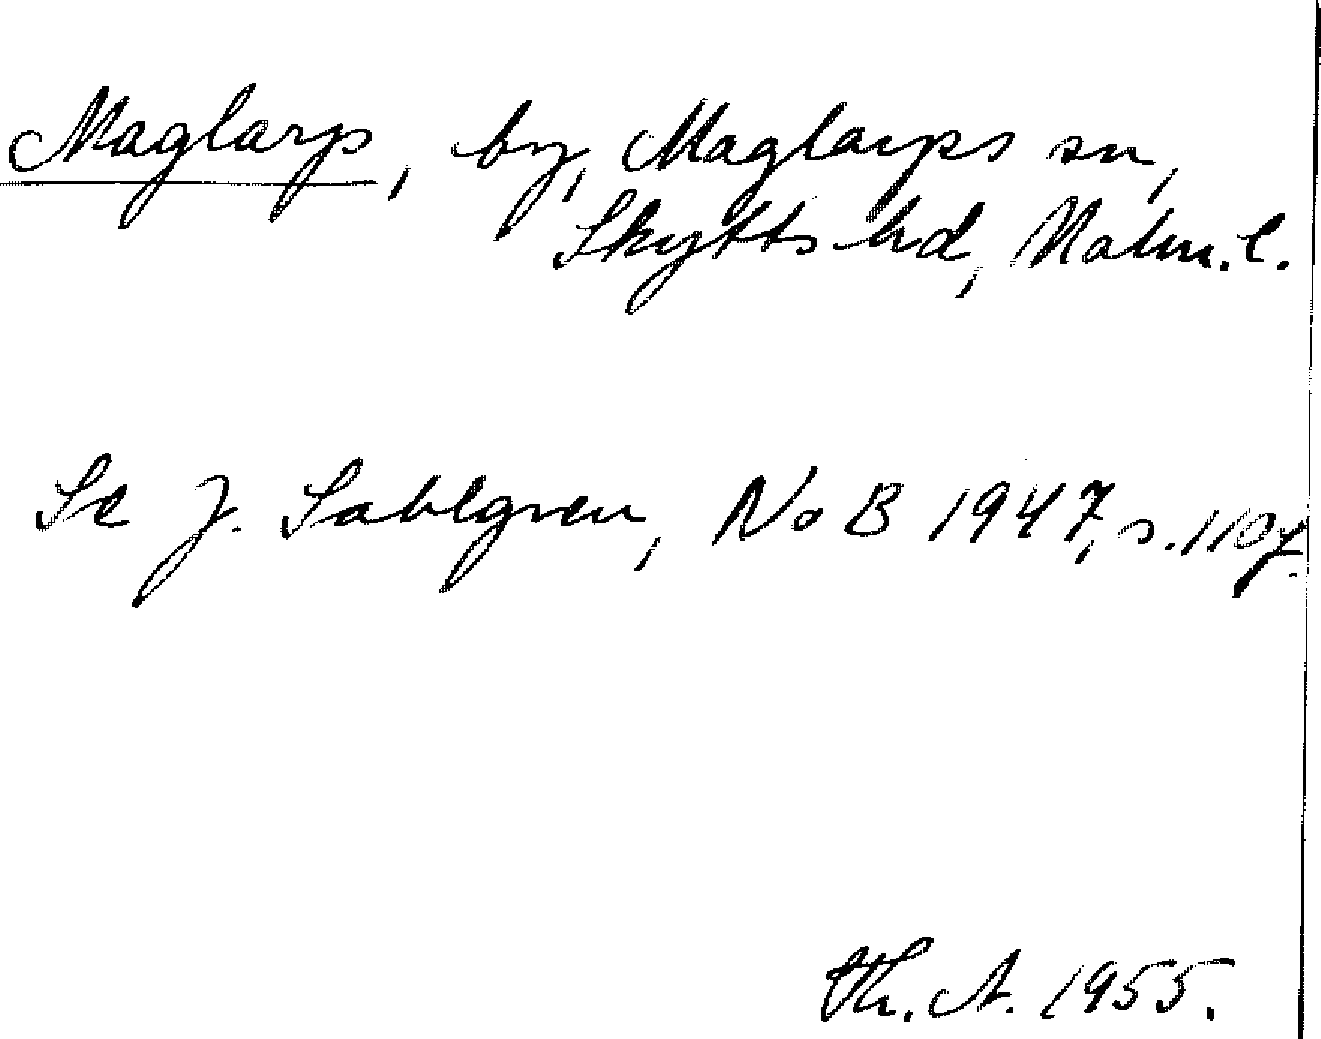 Maglarp, by, Maglarps sn,
Skytts hd, Malm. l.
Se J. Sahlgren, NoB 1947, s. 110 f.
Th. A. 1955.